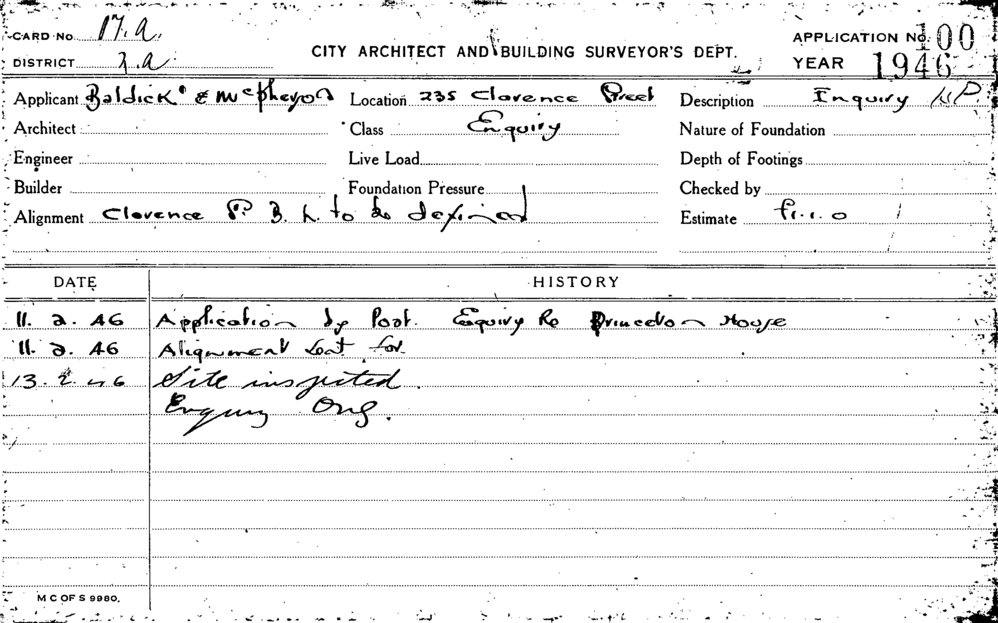 CARD No 17.A. CITY ARCHITECT AND BUILDING SURVEYOR'S DEPT. APPLICATION No. 100
DISTRICT 2.A YEAR 1946
Applicant Baldick & McPherson Location 235 Clarence Street Description Inquiry
Architect Class Enquiry Nature of Foundation
Engineer Live Load Depth of Footings
Builder Foundation Pressure Checked by
Alignment Clarence St. B. L to be defined Estimate £1.1.0
DATE HISTORY
11. 2. 46 Application by Post. Enquiry Re Princeton House
11. 2. 46 Alignment Sent for
13. 2. 46 Site inspected.
Enquiry
M C OF S 9980.